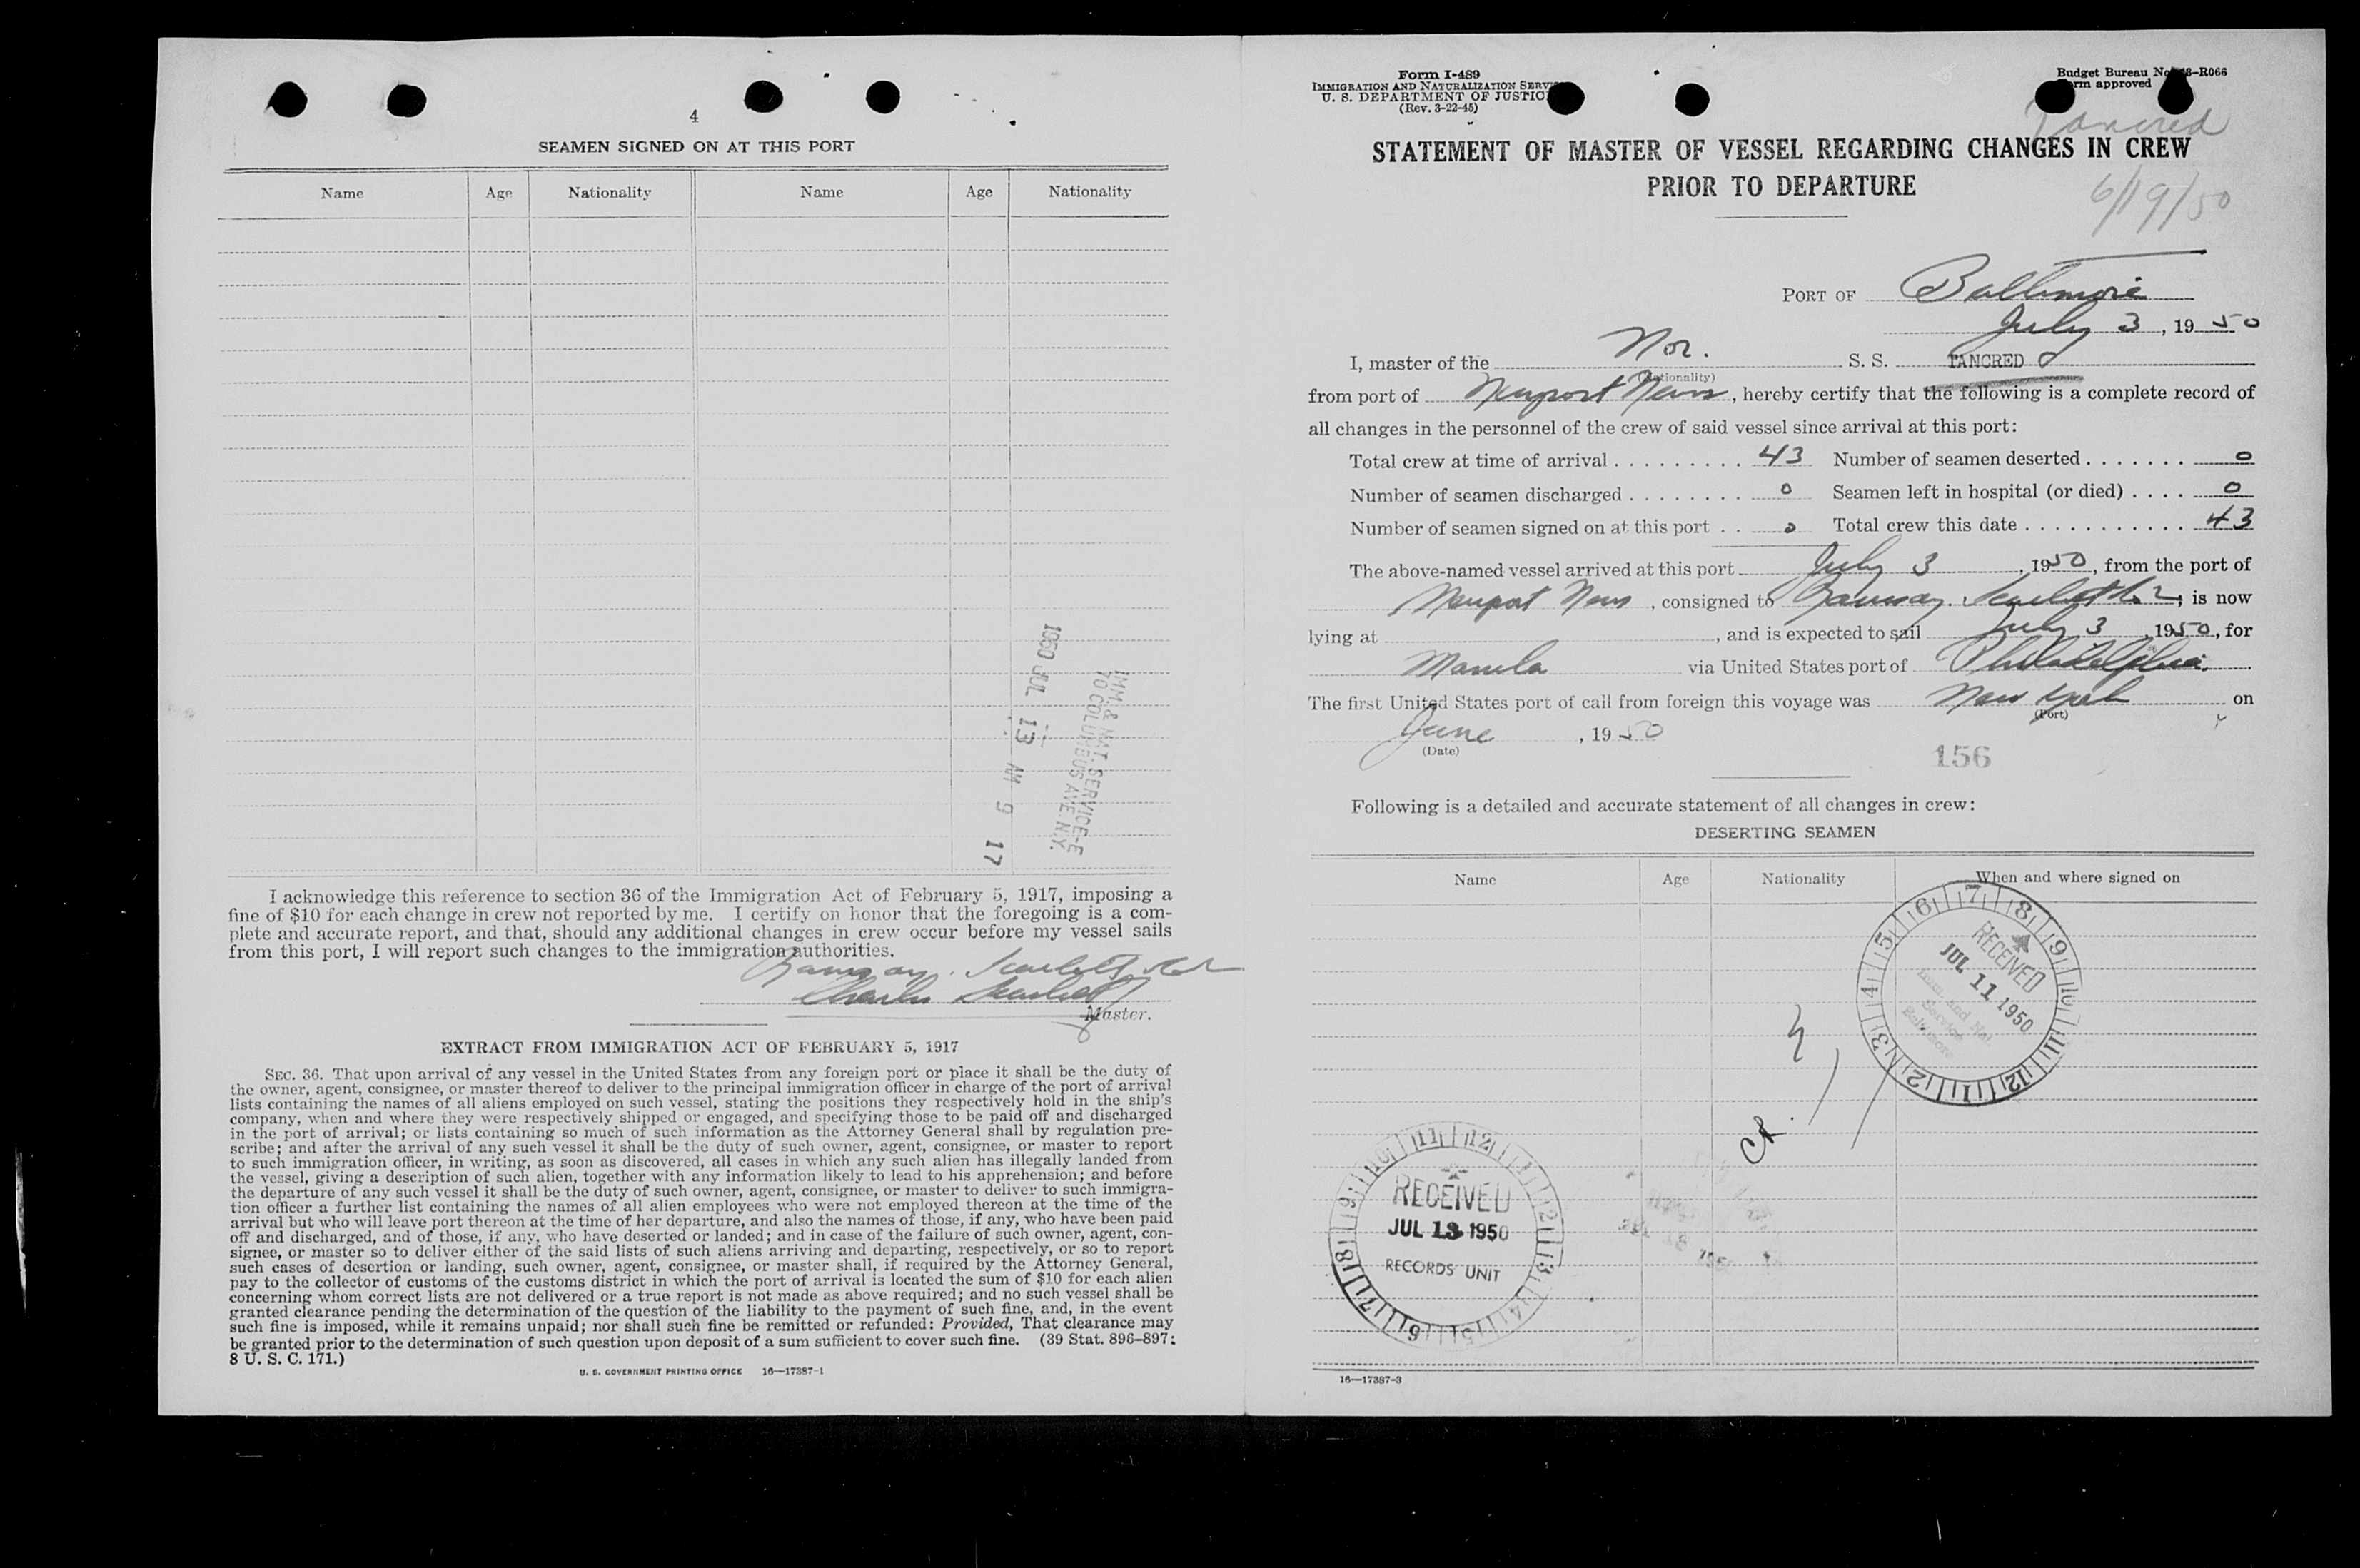 4
SEAMEN SIGNED ON AT THIS PORT
Name Age Nationality Name Age Nationality
IMM. & NAT. SERVICE
70 COLUMBUS AVE. N.Y.
1950 JUL 13 AM 9 17
I acknowledge this reference to section 36 of the Immigration Act of February 5, 1917, imposing a
fine of $10 for each change in crew not reported by me. I certify on honor that the foregoing is a com-
plete and accurate report, and that, should any additional changes in crew occur before my vessel sails
from this port, I will report such changes to the immigration authorities.
Ramsay. Scarlett & Co
Charles Scarlett
Master.
EXTRACT FROM IMMIGRATION ACT OF FEBRUARY 5, 1917
SEC. 36. That upon arrival of any vessel in the United States from any foreign port or place it shall be the duty of
the owner, agent, consignee, or master thereof to deliver to the principal immigration officer in charge of the port of arrival
lists containing the names of all aliens employed on such vessel, stating the positions they respectively hold in the ship's
company, when and where they were respectively shipped or engaged, and specifying those to be paid off and discharged
in the port of arrival; or lists containing so much of such information as the Attorney General shall by regulation pre-
scribe; and after the arrival of any such vessel it shall be the duty of such owner, agent, consignee, or master to report
to such immigration officer, in writing, as soon as discovered, all cases in which any such alien has illegally landed from
the vessel, giving a description of such alien, together with any information likely to lead to his apprehension; and before
the departure of any such vessel it shall be the duty of such owner, agent, consignee, or master to deliver to such immigra-
tion officer a further list containing the names of all alien employees who were not employed thereon at the time of the
arrival but who will leave port thereon at the time of her departure, and also the names of those, if any, who have been paid
off and discharged, and of those, if any, who have deserted or landed; and in case of the failure of such owner, agent, con-
signee, or master so to deliver either of the said lists of such aliens arriving and departing, respectively, or so to report
such cases of desertion or landing, such owner, agent, consignee, or master shall, if required by the Attorney General,
pay to the collector of customs of the customs district in which the port of arrival is located the sum of $10 for each alien
concerning whom correct lists are not delivered or a true report is not made as above required; and no such vessel shall be
granted clearance pending the determination of the question of the liability to the payment of such fine, and, in the event
such fine is imposed, while it remains unpaid; nor shall such fine be remitted or refunded: Provided, That clearance may
be granted prior to the determination of such question upon deposit of a sum sufficient to cover such fine. (39 Stat. 896-897;
8 U. S. C. 171.)
U. S. GOVERNMENT PRINTING OFFICE 16—17387-1
Form I-489
IMMIGRATION AND NATURALIZATION SERV
U. S. DEPARTMENT OF JUSTIC
(Rev. 3-22-45)
Budget Bureau No -R066
rm approved
Tancred
STATEMENT OF MASTER OF VESSEL REGARDING CHANGES IN CREW
PRIOR TO DEPARTURE
6/19/50
PORT OF Baltimore
July 3, 1950
I, master of the Nor. S. S. TANCRED
(Nationality)
from port of Newport News, hereby certify that the following is a complete record of
all changes in the personnel of the crew of said vessel since arrival at this port:
Total crew at time of arrival 43 Number of seamen deserted 0
Number of seamen discharged 0 Seamen left in hospital (or died) 0
Number of seamen signed on at this port 0 Total crew this date 43
The above-named vessel arrived at this port July 3, 1950, from the port of
Newport News, consigned to Ramsay. Scarlett & Co, is now
lying at , and is expected to sail July 3, 1950, for
Manila via United States port of Philadelphia.
The first United States port of call from foreign this voyage was New York on
(Port)
June, 1950
(Date)
156
Following is a detailed and accurate statement of all changes in crew:
DESERTING SEAMEN
Name Age Nationality When and where signed on
6 7 8 9 10 11 12 1 2 3 4 5
RECEIVED
JUL 11 1950
Imm. and Nat
Service
Baltimore
11 12 1 2 3 4 5 6 7 8 9 10
RECEIVED
JUL 13 1950
RECORDS UNIT
16—17387-3